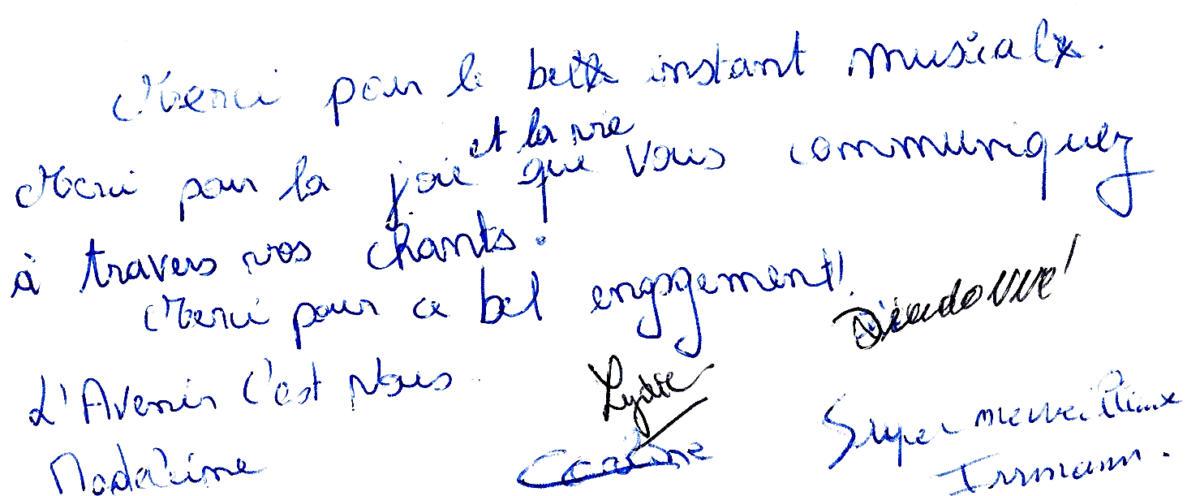 Merci pour le bel instant musical.
et la vie
Merci pour la joie que vous communiquez
à travers vos chants.
Merci pour ce bel engagement!
Dieudonné
L'Avenir C'est Nous
Lydie
Super merveilleux
Madeleine
Carine
Irrmann.